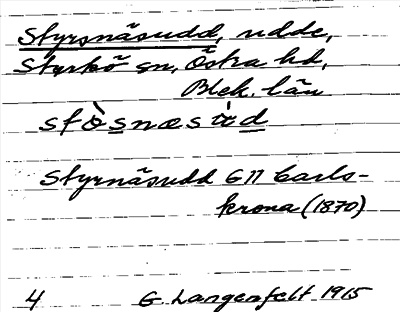 Styrsnäsudd, udde,
Sturkö sn, Östra hd,
Blek. län
Styrnäsudd GII Carls-
krona (1870)
4 G. Langenfelt 1915